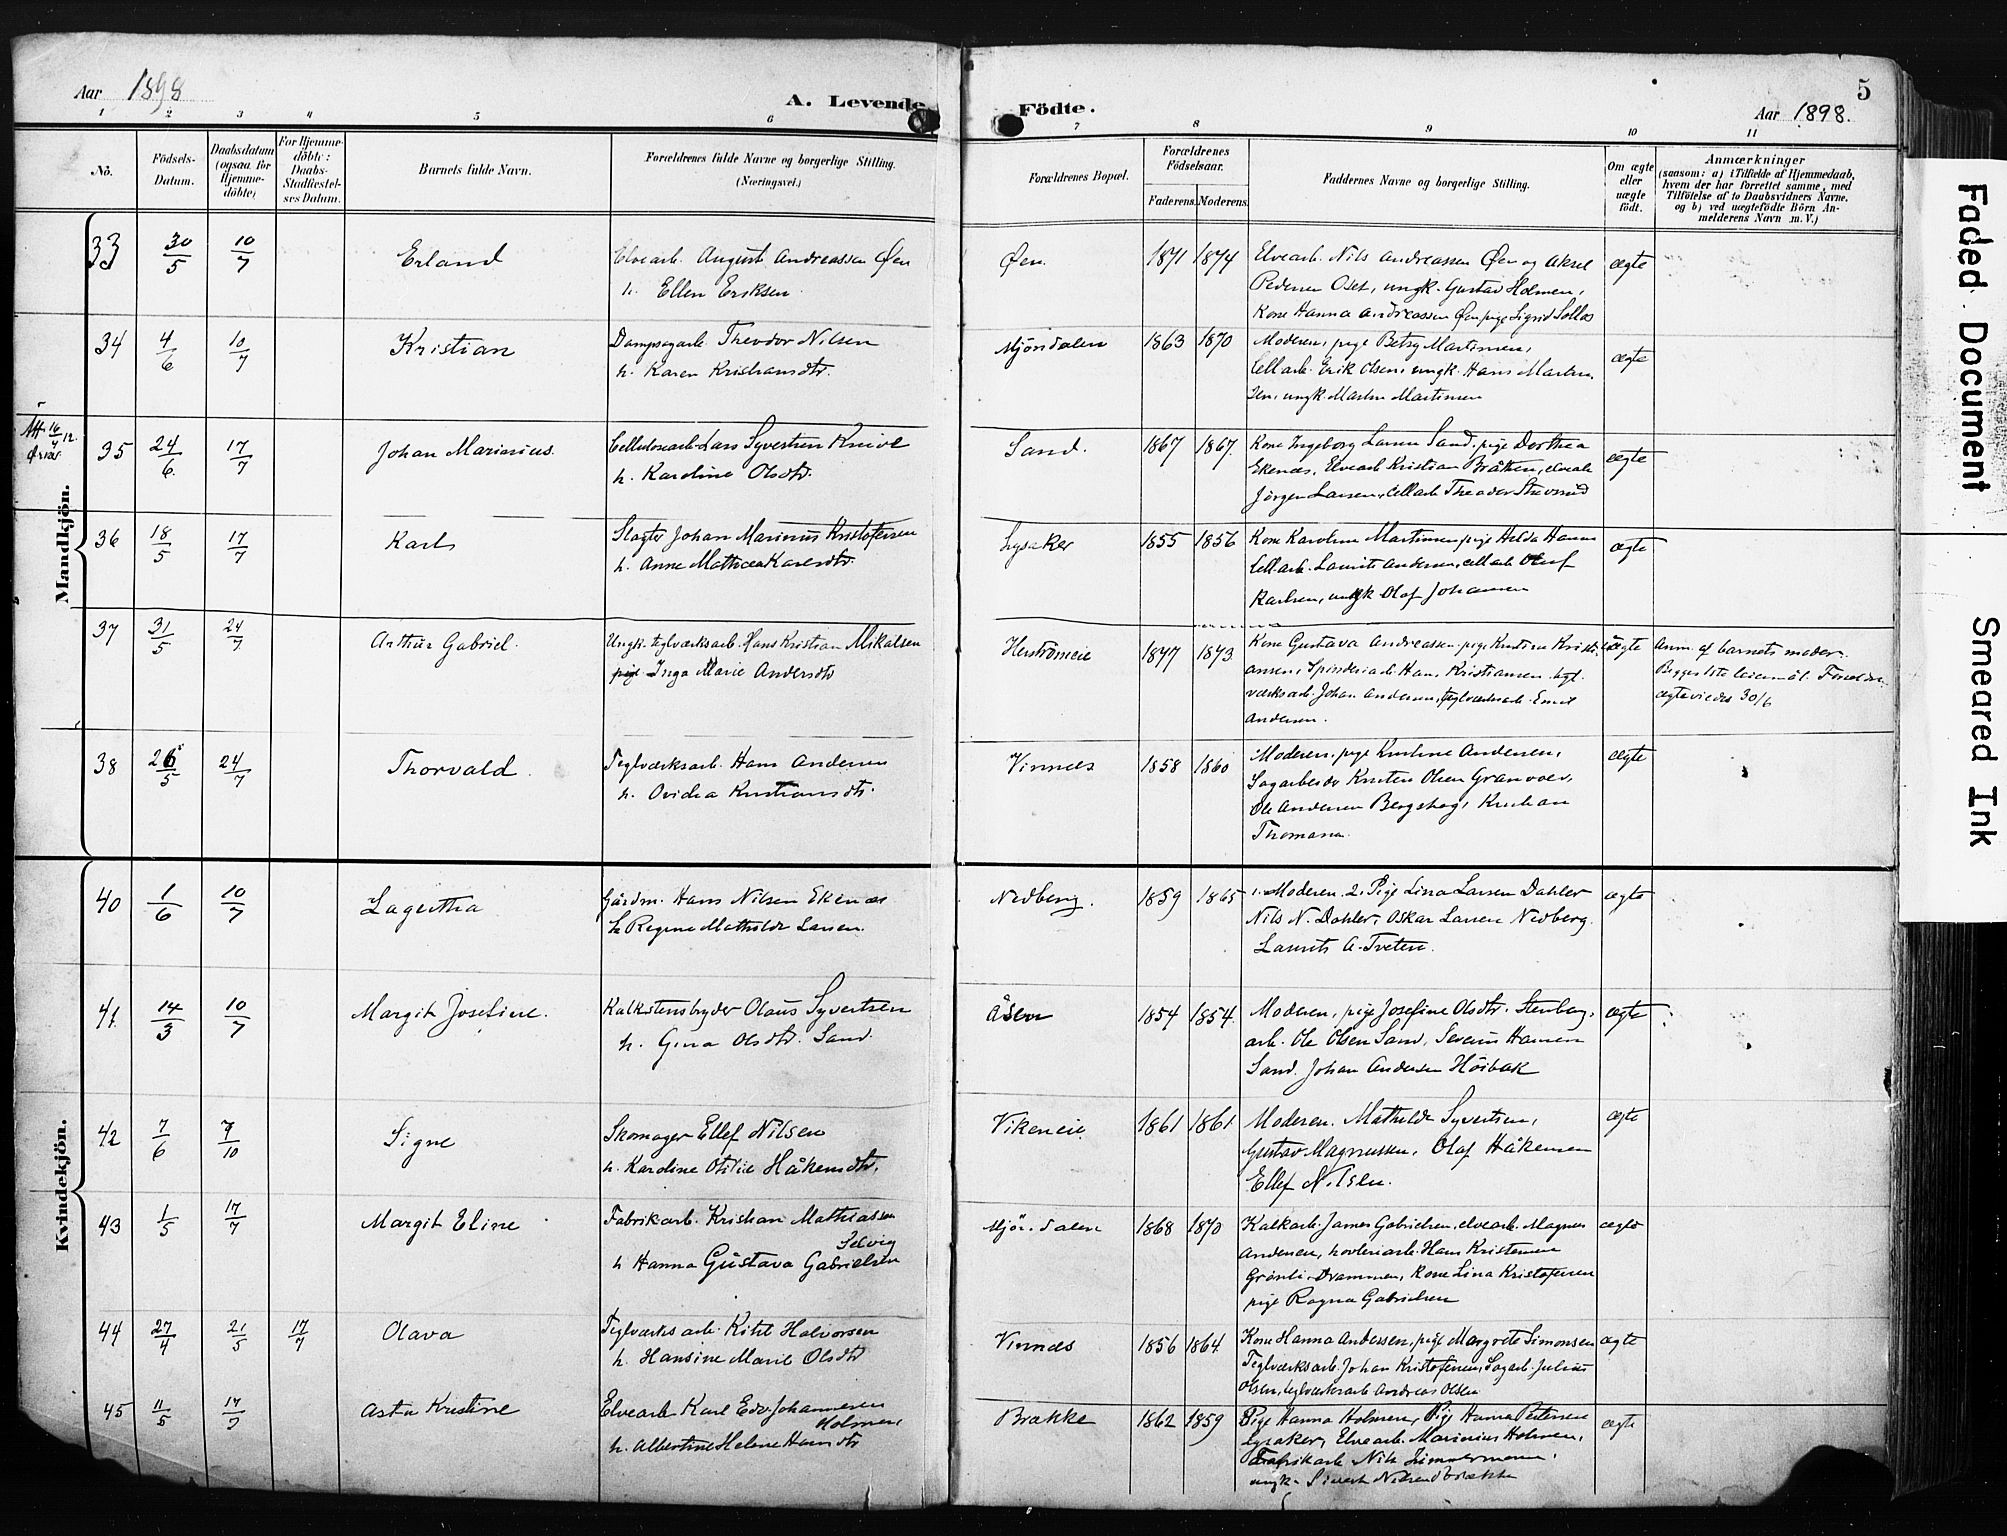 Aar 1898
A. Levende Födte.
Aar 1898.
5
1 2 3 4 5 6 7 8 9 10 11
No.
Födsels-
Datum.
Daabsdatum
(ogsaa for
Hjemme-
döbte)
For Hjemme-
döbte:
Daabs-
Stadfæstel-
ses Datum.
Barnets fulde Navn.
Forældrenes fulde Navne og borgerlige Stilling.
(Næringsvei.)
Forældrenes Bopæl.
Forældrenes
Födselsaar.
Faderens. Moderens.
Faddernes Navne og borgerlige Stilling.
Om ægte
eller
uægte
födt.
Anmærkninger
(saasom: a) i Tilfælde af Hjemmedaab,
hvem der har forrettet samme, med
Tilföielse af to Daabsvidners Navne,
og b) ved uægtefödte Börn An-
melderens Navn m. V.)
Mandkjön.
33 30/5 10/7 Erland
Elvearb. August Andreassen Øen
h. Ellen Eriksen
Øen. 1871 1874
Elvearb. Nils Andreassen Øen og Aksel
Pedersen Oset, ungk. Gustav Holmen,
Kone Hanna Andreassen Øen pige Sigrid Sollos
ægte
34 4/6 10/7 Kristian
Dampsagarb. Theodor Nilsen
h. Karen Kristiansdtr.
Mjöndalen 1863 1870
Moderen, pige Betsy Martinsen,
Cellarb. Erik Olsen, ungk. Hans Martin-
sen, ungk. Martin Martinsen
ægte
Att 16/4 12.
35 24/6 17/7 Johan Marinius.
Cellulosearb. Lars Syvertsen Knive
h. Karoline Olsdtr.
Sand. 1867 1867.
Kone Ingeborg Larsen Sand, pige Dorthea
Ekenæs, Elvearb Kristian Bråthen, elvearb
Jörgen Larsen, Cellarb Theodor Stevsrud
ægte
36 18/5 17/7 Karl
Slagter Johan Marinus Kristofersen
h. Anne Mathea Karlsdtr.
Lysaker 1855 1856
Kone Karoline Martinsen, pige Hilda Hansen
Cellarb. Laurits Andersen, cellarb Oluf
Karlsen, ungk Olaf Johansen
ægte
37 31/5 24/7 Arthur Gabriel.
Ungk. teglværksarb. Hans Kristian Mikalsen
pige Inga Marie Andersdtr
Herstrømeie 1877 1873
Kone Gustava Andreassen pige Kristine Kristi-
ansen, Spinderiarb Hans Kristiansen tegl-
værksarb. Johan Andersen, teglværksarb. Emil
Andersen.
uægte
Anm. af barnets moder.
Begges 1ste leiermål. Forældre
ægteviedes 30/6
38 26/5 24/7 Thorvald
Teglværksarb. Hans Andersen
h. Ovidia Kristiansdtr.
Vinnæs 1858 1860
Moderen, pige Kristine Andersen,
Sagarbeider Kristen Olsen Granvoev,
Ole Andersen Bergshag, Kristian
ægte
Kvindekjön.
40 1/6 10/7 Lagertha
Gårdm. Hans Nilsen Ekenæs
h Regine Mathilde Larsen.
Nedberg. 1859 1865
1. Moderen 2. Pige Lina Larsen Dahler
Nils N. Dahler, Oskar Larsen Nedberg.
Laurits A. Tveten.
ægte
41 14/3 10/7 Margit Josefine.
Kalkstensbryder Olaus Syvertsen
h. Gina Olsdtr. Sand.
Åsen 1854 1854.
Moderen, pige Josefine Olsdtr. Stenberg,
arb. Ole Olsen Sand, Severin Hansen
Sand. Johan Andersen Høibak
ægte
42 7/6 7/10 Signe
Skomager Ellef Nilsen
h. Karoline Otilie Håkensdtr.
Vikeneie 1861 1861
Moderen. Mathilde Syvertsen,
Gustav Magnussen, Olaf Håkensen
Ellef Nilsen.
ægte
43 1/5 17/7 Margit Eline
Fabrikarb. Kristian Mathiassen
Selvig
h Hanna Gustava Gabrielsen
Mjöndalen 1868 1870
Kalkarb. James Gabrielsen, elvearb. Magnus
Andersen, hovleriarb. Hans Kristensen
Grönli-Drammen, Kone Lina Kristofersen
pige Ragna Gabrielsen
ægte
44 27/4 21/5 17/7 Olava
Teglværksarb. Kittil Halvorsen
h. Hansine Marie Olsdtr
Vinnæs 1856 1864
Kone Hanna Andersen, pige Margrete Simonsen
Teglværksarb. Johan Kristofersen, Sagarb. Julius
Olsen, teglværksarb Andreas Olsen
ægte
45 11/5 17/7 Asta Kristine
Elvearb Karl Edv. Johannesen
Holmen
h. Albertine Helene Hansdtr
Brække 1862 1859
Pige Hanna Holmen, Pige Hanna Pettersen
Lysaker, Elvearb. Marinius Holmen,
Fabrikarb Nils Zimmermann,
ungk. Sivert Nilsen Brække
ægte
Faded Document
Smeared Ink